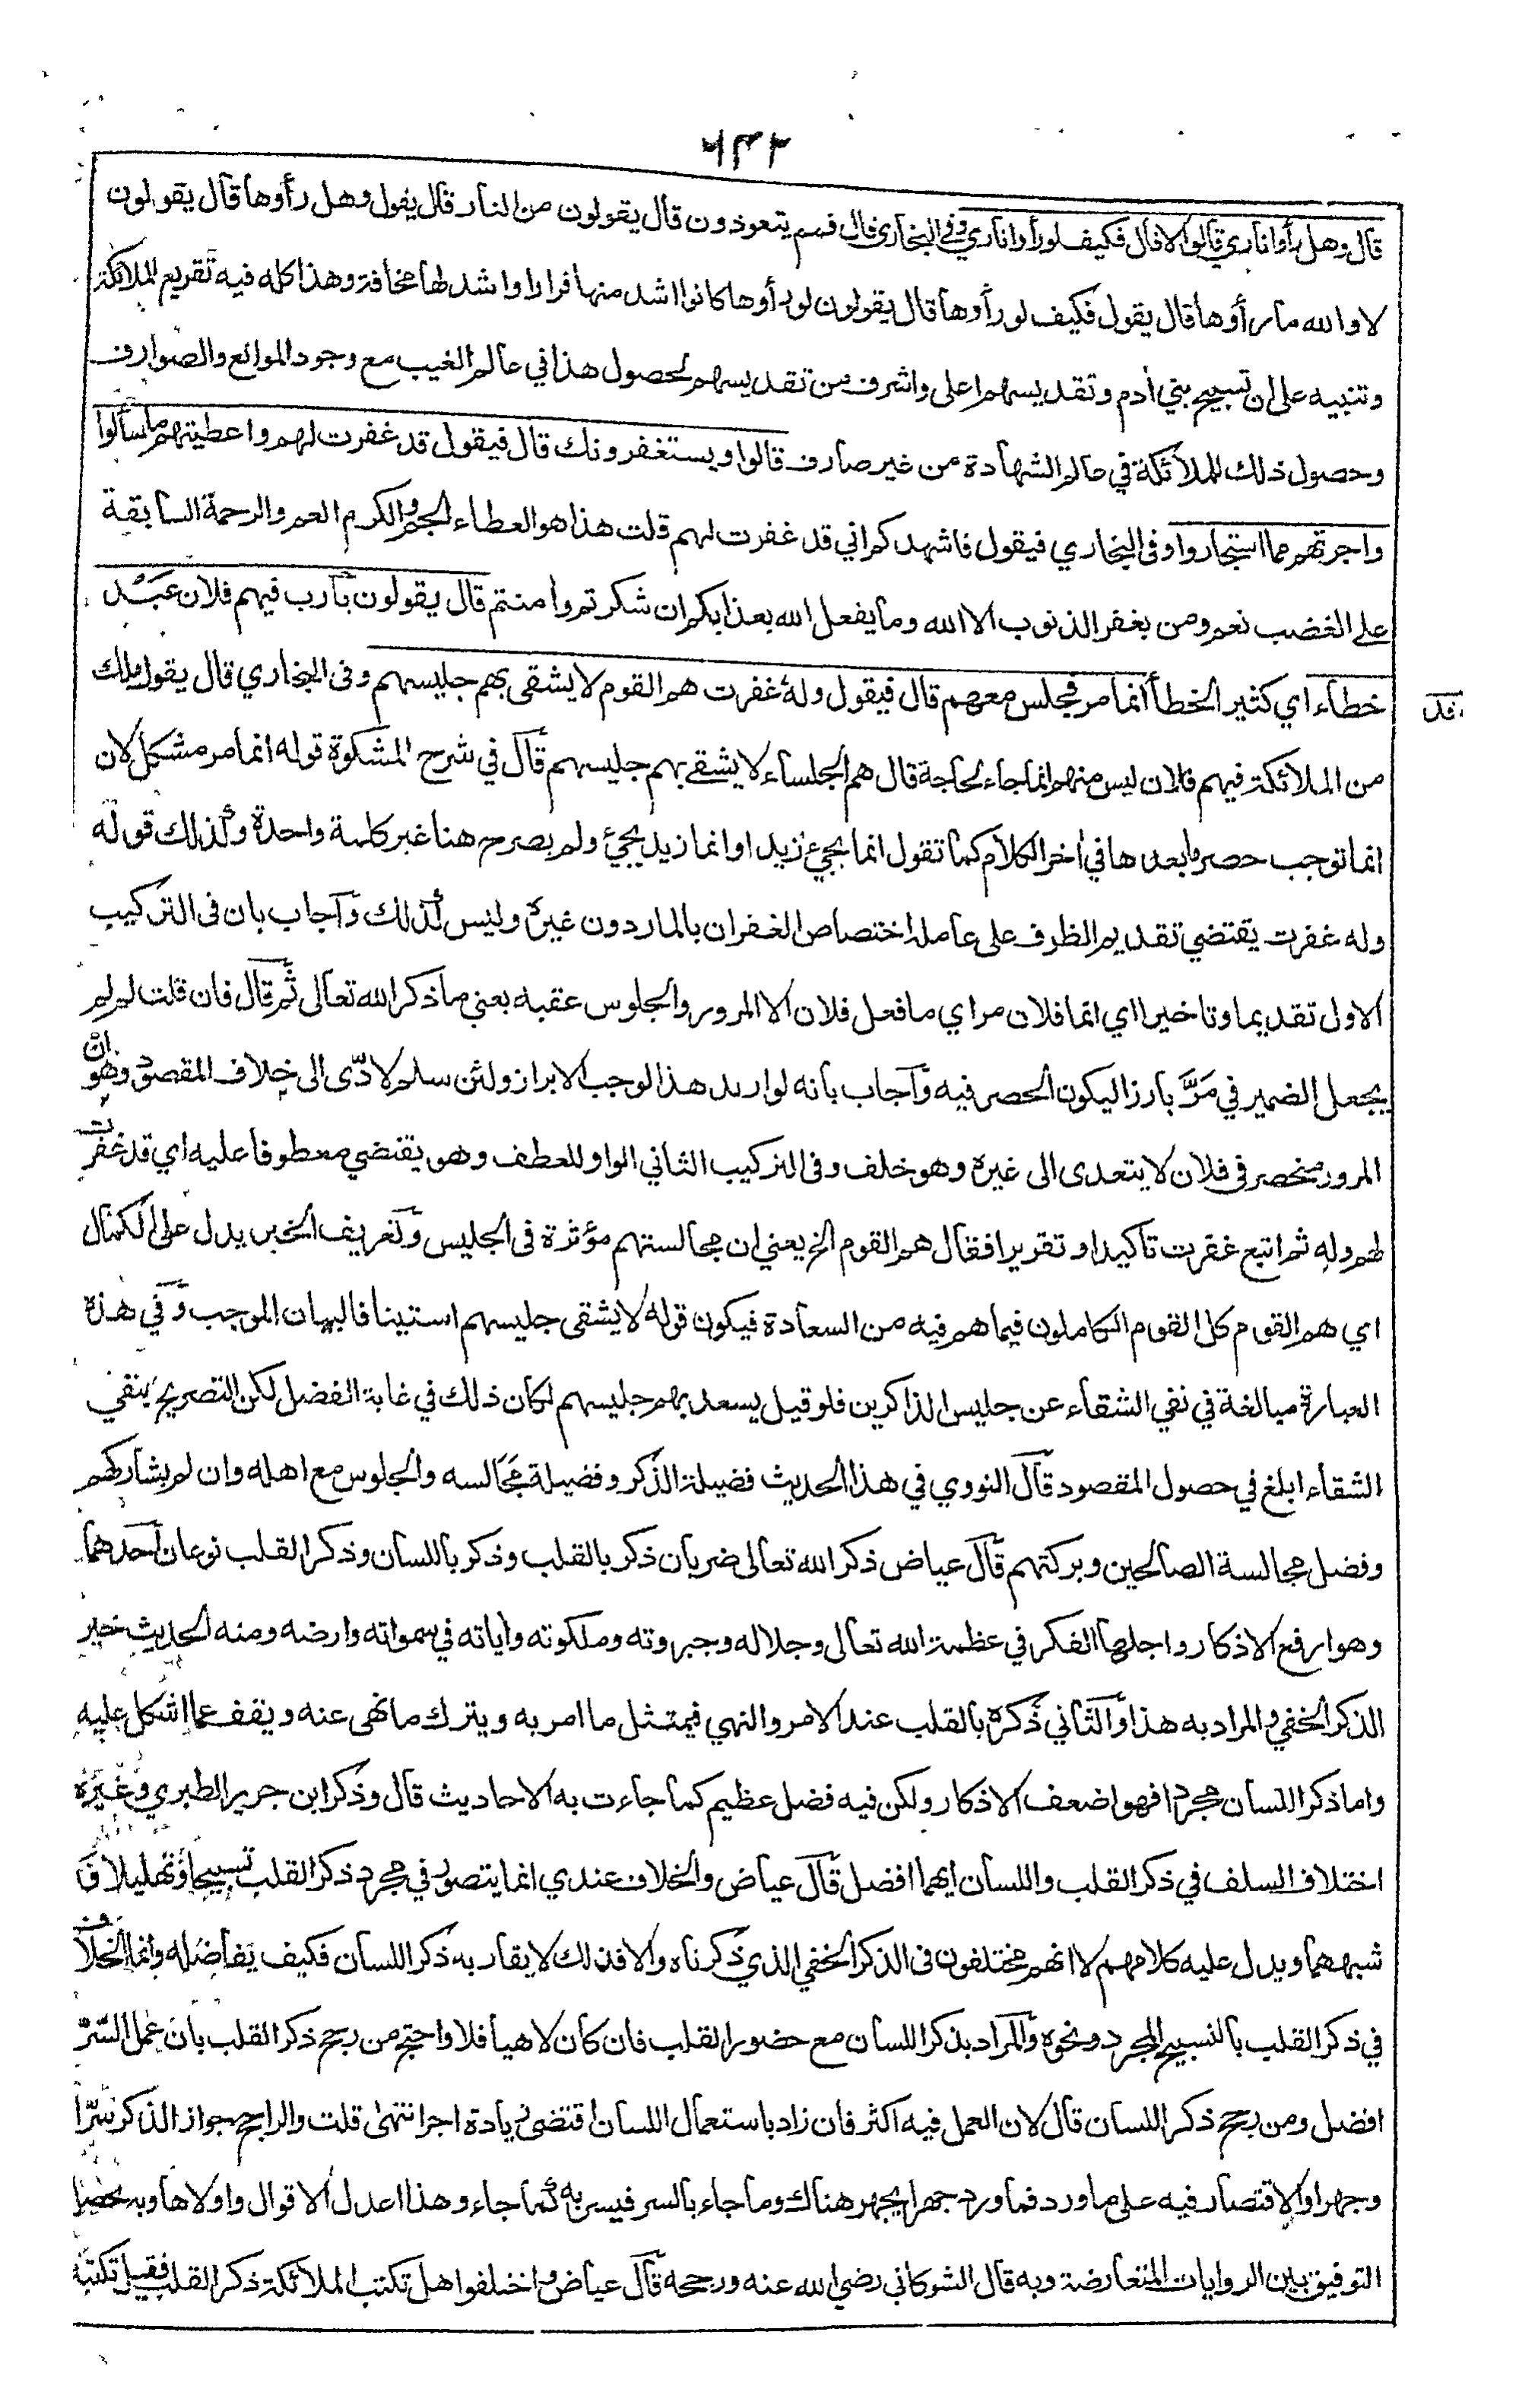 ٦٤٢
قال وهل رأوا ناري قالوا لا قال فكيف لو رأوا ناري وفي البخاري قال فمم يتعوذون قال يقولون من النار قال يقول وهل رأوها قال يقولون
لا والله ما رأوها قال يقول فكيف لو رأوها قال يقولون لو رأوها كانوا اشد منها فرارا واشد لها مخافة وهذا كله فيه تقريع للملائكة
وتنبيه على ان تسبيح بني أدم وتقديسهم اعلى واشرف من تقديسهم لحصول هذا في عالم الغيب مع وجود الموانع والصوارف
وحصول ذلك للملائكة في عالم الشهادة من غير صارف قالوا ويستغفرونك قال فيقول قد غفرت لهم واعطيتهم ما سألوا
واجرتهم مما استجاروا وفي البخاري فيقول فاشهدكم اني قد غفرت لهم قلت هذا هو العطاء الجم والكرم العم والرحمة السابقة
على الغضب نعم ومن يغفر الذنوب الا الله وما يفعل الله بعذابكم ان شكرتم وأمنتم قال يقولون يا رب فيهم فلان عبد
خطاء اي كثير الخطأ انما مر فجلس معهم قال فيقول وله غفرت هم القوم لا يشقى بهم جليسهم وفي البخاري قال يقول ملك
قد
من الملائكة فيهم فلان ليس منهم انما جاء لحاجة قال هم الجلساء لا يشقى بهم جليسهم قال في شرح المشكوة قوله انما مر مشكل لان
انما توجب حصر ما بعدها في أخر الكلام كما تقول انما يجيء زيد او انما زيد يجيء ولم يصرح هنا غير كلمة واحدة وكذلك قوله
وله غفرت يقتضي تقديم الظرف على عامله اختصاص الغفران بالمار دون غيره وليس كذلك وأجاب بان في التركيب
الاول تقديما وتاخيرا اي انما فلان مر اي ما فعل فلان الا المرور والجلوس عقبه يعني ما ذكر الله تعالى ثم قال فان قلت لم لم
يجعل الضمير في مر بارزا ليكون الحصر فيه وأجاب بانه لو اريد هذا لوجب الابراز ولئن سلم لادى الى خلاف المقصود وهو ان
المرور منحصر في فلان لا يتعدى الى غيره وهو خلف وفي التركيب الثاني الواو للعطف وهو يقتضي معطوفا عليه اي قد غفرت
لهم وله ثم اتبع غفرت تأكيدا وتقريرا فقال هم القوم الخ يعني ان مجالستهم مؤثرة في الجليس وتعريف الخبر يدل على الكمال
اي هم القوم كل القوم الكاملون فيما هم فيه من السعادة فيكون قوله لا يشقى جليسهم استينافا لبيان الموجب وفي هذه
العبارة مبالغة في نفي الشقاء عن جليس الذاكرين فلو قيل يسعد بهم جليسهم لكان ذلك في غاية الفضل لكن التصريح بنفي
الشقاء ابلغ في حصول المقصود قال النووي في هذا الحديث فضيلة الذكر وفضيلة مجالسه والجلوس مع اهله وان لم يشاركهم
وفضل مجالسة الصالحين وبركتهم قال عياض ذكر الله تعالى ضربان ذكر بالقلب وذكر باللسان وذكر القلب نوعان احدهما
وهو ارفع الاذكار واجلها الفكر في عظمة الله تعالى وجلاله وجبروته وملكوته وأياته في سمواته وارضه ومنه الحديث خير
الذكر الخفي والمراد به هذا والثاني ذكره بالقلب عند الامر والنهي فيمتثل ما امر به ويترك ما نهى عنه ويقف عما اشكل عليه
واما ذكر اللسان مجردا فهو اضعف الاذكار ولكن فيه فضل عظيم كما جاءت به الاحاديث قال وذكر ابن جرير الطبري وغيره
اختلاف السلف في ذكر القلب واللسان ايهما افضل قال عياض والخلاف عندي انما يتصور في مجرد ذكر القلب تسبيحا وتهليلا و
شبههما ويدل عليه كلامهم لا انهم مختلفون في الذكر الخفي الذي ذكرناه والا فذلك لا يقاربه ذكر اللسان فكيف يفاضله وانما الخلاف
في ذكر القلب بالتسبيح المجرد ونحوه والمراد بذكر اللسان مع حضور القلب فان كان لاهيا فلا واحتج من رجح ذكر القلب بان عمل السر
افضل ومن رجح ذكر اللسان قال لان العمل فيه اكثر فان زاد باستعمال اللسان اقتضى زيادة اجر انتهى قلت والراجح جواز الذكر سرا
وجهرا والاقتصار فيه على ما ورد فما ورد جهرا يجهر هناك وما جاء بالسر فيسر به كما جاء وهذا اعدل الاقوال واولاها وبه يحصل
التوفيق بين الروايات المتعارضة وبه قال الشوكاني رضي الله عنه ورجحه قال عياض واختلفوا هل تكتب الملائكة ذكر القلب فقيل تكتبه